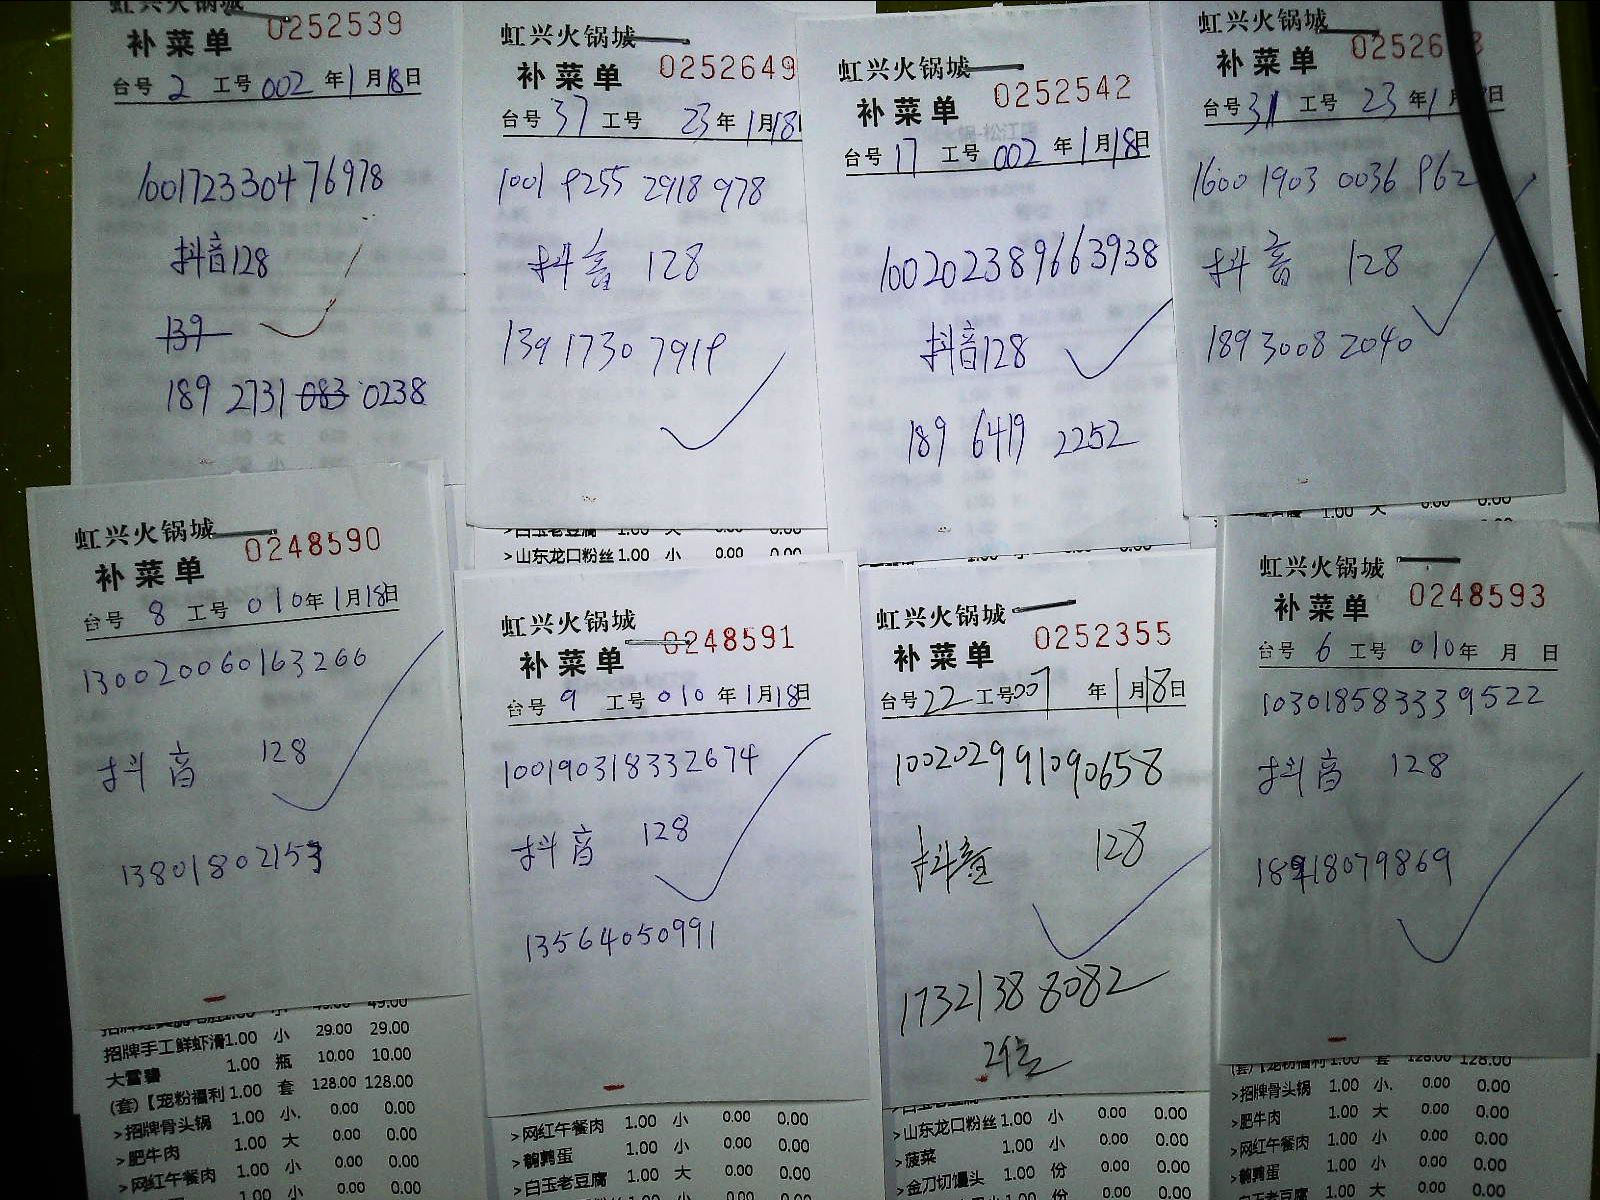 虹兴火锅城
补菜单 0252539
台号 2 工号 002 年 1 月 18 日
100172330476978
抖音128
139
189 2731 083 0238
虹兴火锅城
补菜单 0252649
台号 37 工号 23 年 1 月 18
1001 8255 2918 978
抖音 128
139 1730 7919
虹兴火锅城
补菜单 0252542
台号 17 工号 002 年 1 月 18 日
100202389663938
抖音128
189 6419 2252
虹兴火锅城
补菜单
台号 31 工号 23 年 1 月 日
1600 1903 0036 862
抖音 128
189 3008 2040
>白玉老豆腐 1.00 大 0.00 0.00
>山东龙口粉丝 1.00 小 0.00 0.00
虹兴火锅城
补菜单 0248590
台号 8 工号 010 年 1 月 18 日
130020060163266
抖音 128
虹兴火锅城
补菜单 0248591
台号 9 工号 010 年 1 月 18 日
100190318332674
抖音 128
13564050991
虹兴火锅城
补菜单 0252355
台号 22 工号 007 年 1 月 18 日
100202991090658
抖音 128
17321388082
虹兴火锅城
补菜单 0248593
台号 6 工号 010 年 月 日
103018583339522
抖音 128
18918079869
招牌手工鲜虾滑 1.00 小 29.00 29.00
大雪碧 1.00 瓶 10.00 10.00
(套)【宠粉福利 1.00 套 128.00 128.00
>招牌骨头锅 1.00 小. 0.00 0.00
>肥牛肉 1.00 大 0.00 0.00
>网红午餐肉 1.00 小 0.00 0.00
1.00 小 0.00 0.00
>网红午餐肉 1.00 小 0.00 0.00
>鹌鹑蛋 1.00 小 0.00 0.00
>白玉老豆腐 1.00 大 0.00 0.00
>山东龙口粉丝 1.00 小 0.00 0.00
>菠菜 1.00 小 0.00 0.00
>金刀切馒头 1.00 份 0.00 0.00
(套)【宠粉福利 1.00 套 128.00 128.00
>招牌骨头锅 1.00 小. 0.00 0.00
>肥牛肉 1.00 大 0.00 0.00
>网红午餐肉 1.00 小 0.00 0.00
>鹌鹑蛋 1.00 小 0.00 0.00
白玉老豆腐 1.00 大 0.00 0.00